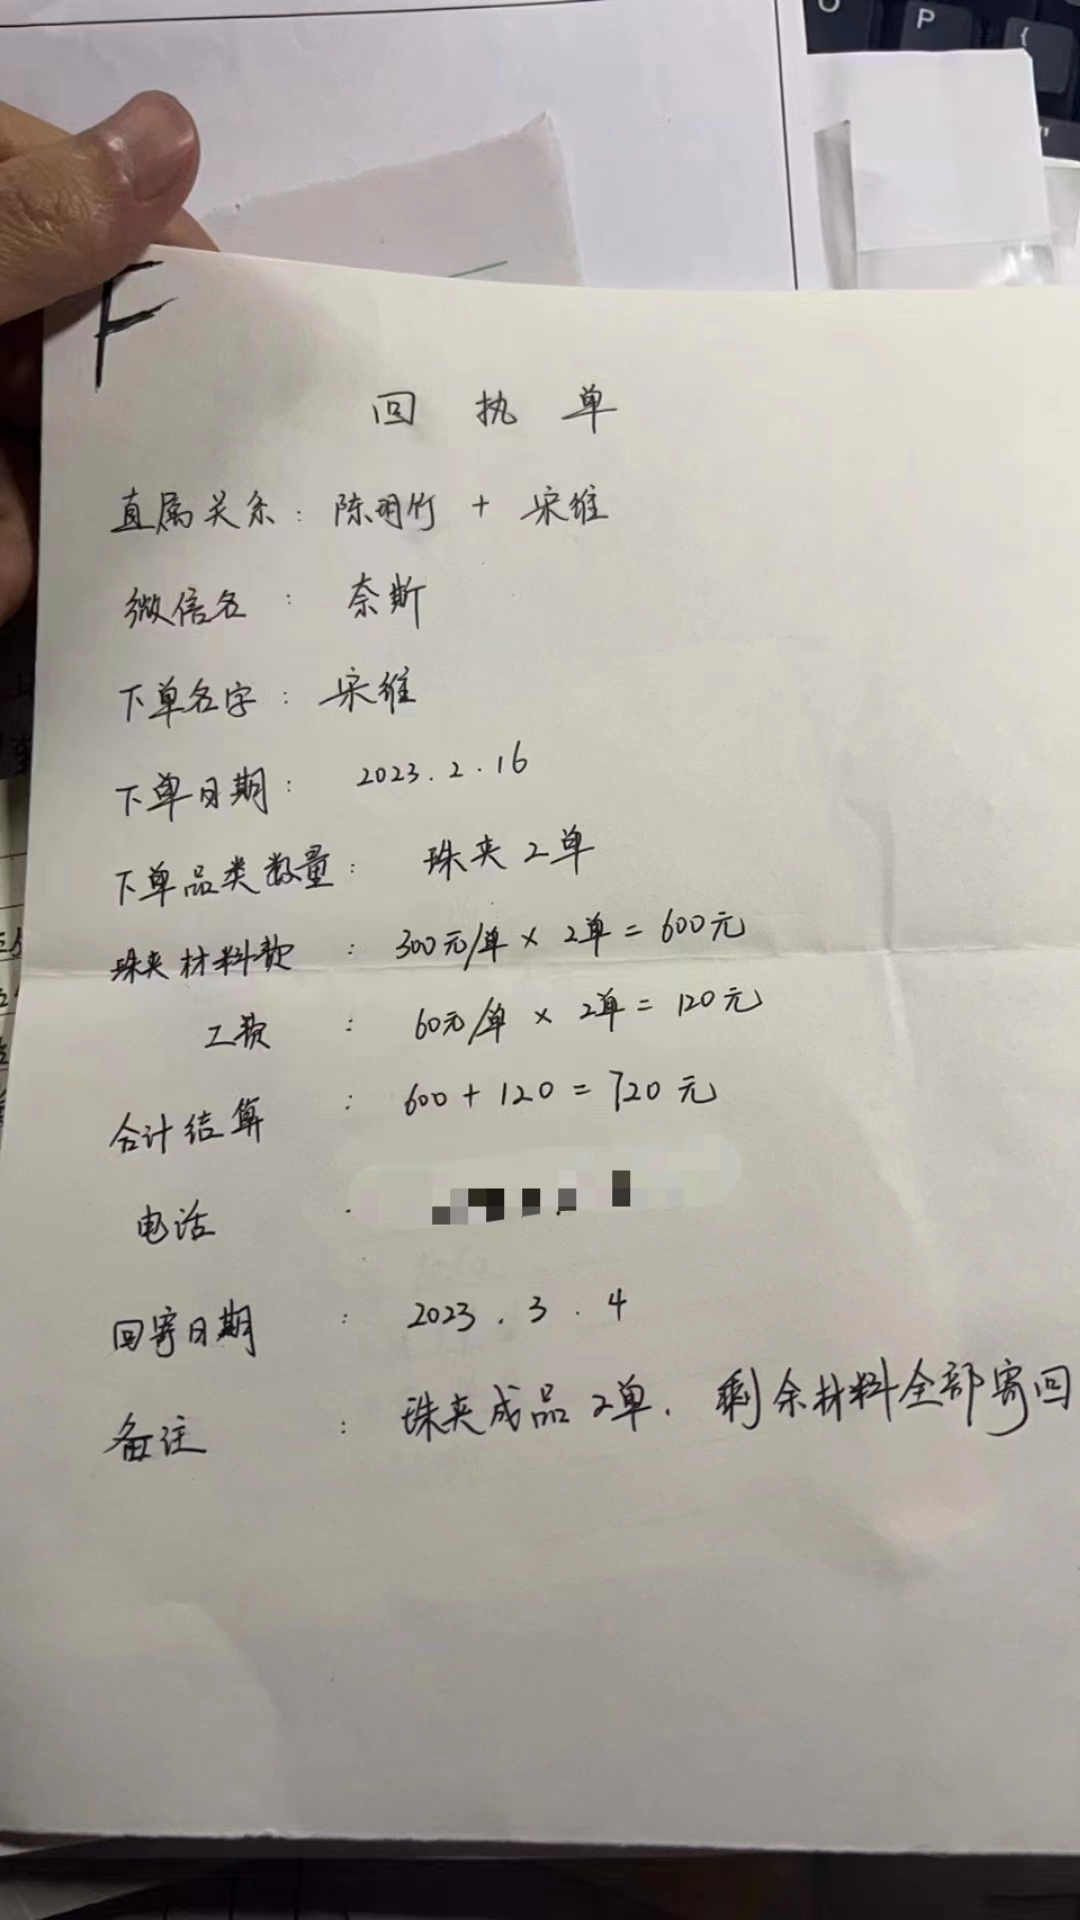 P
{
F
回执单
直属关系：陈明竹 + 宋维
微信名：奈斯
下单名字：宋维
下单日期：2023.2.16
下单品类数量：珠夹2单
珠夹材料款：300元/单 × 2单 = 600元
工费：60元/单 × 2单 = 120元
合计结算：600 + 120 = 720元
电话
回寄日期：2023.3.4
备注：珠夹成品2单. 剩余材料全部寄回